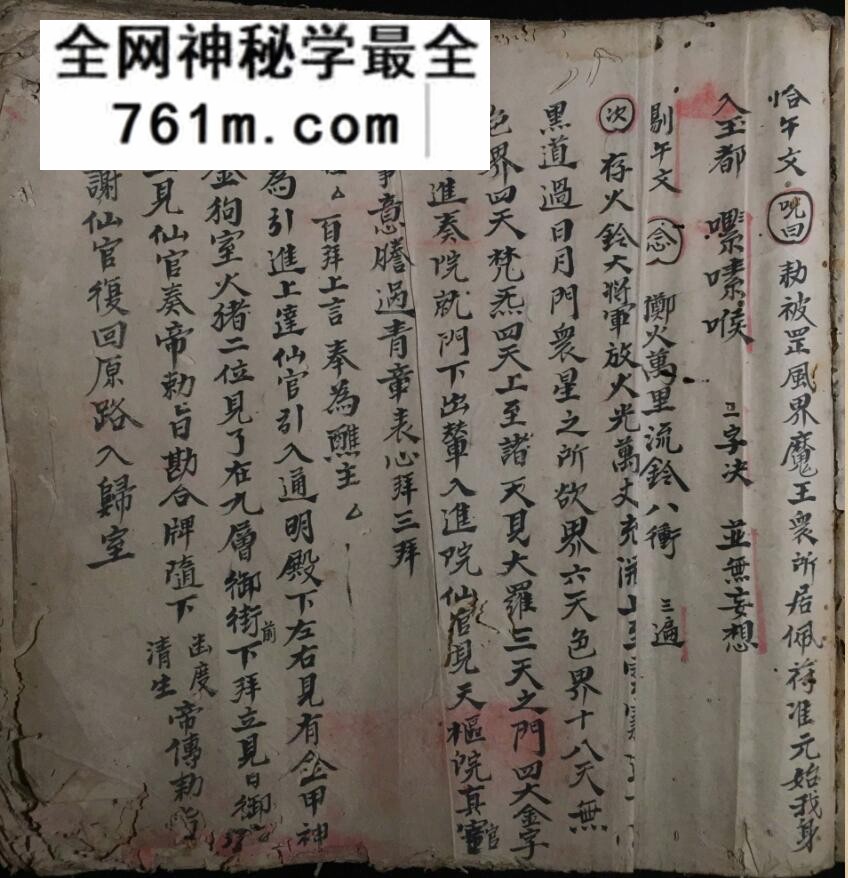 全网神秘学最全
761m.com
恰午文 咒曰 勅被罡風界魔王衆所居佩符准元始我身
入玉都 嚛嗉喉 二字决 並無妄想
剔午文 念 擲火萬里流鈴八衝 三遍
次 存火鈴大將軍放火光萬丈充
黑道過日月門衆星之所欲界六天色界十八天無
色界四天梵炁四天上至諸天見大羅三天之門四大金字
進奏院就門下出輦入進院仙官見天樞院真官
事意謄過青章表心拜三拜
百拜上言奉為醮主
為引進上達仙官引入通明殿下左右見有金甲神
金狗室火猪二位見了在九層御街前下拜立見日御
見仙官奏帝勅旨勘合牌隨下 幽度 清生 帝傳勅
謝仙官復回原路入歸室